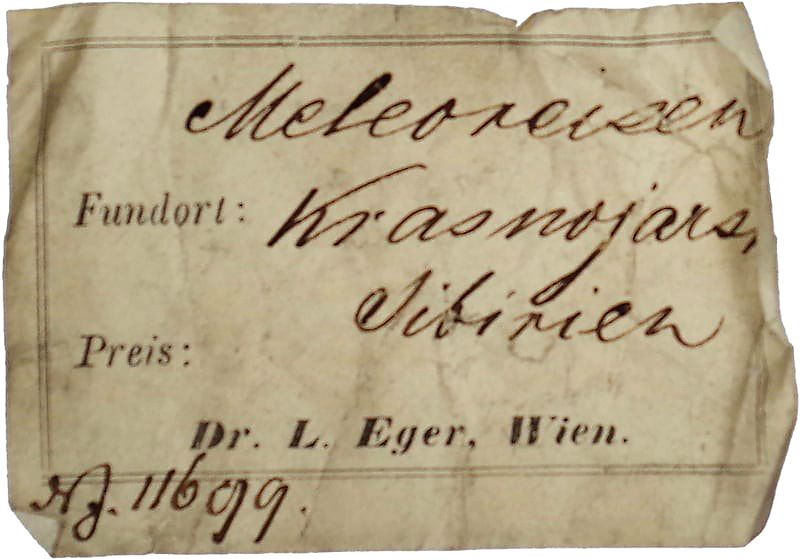 Meteoreisen
Fundort: Krasnojars,
Sibirien
Preis:
Dr. L. Eger, Wien.
NJ. 11699.